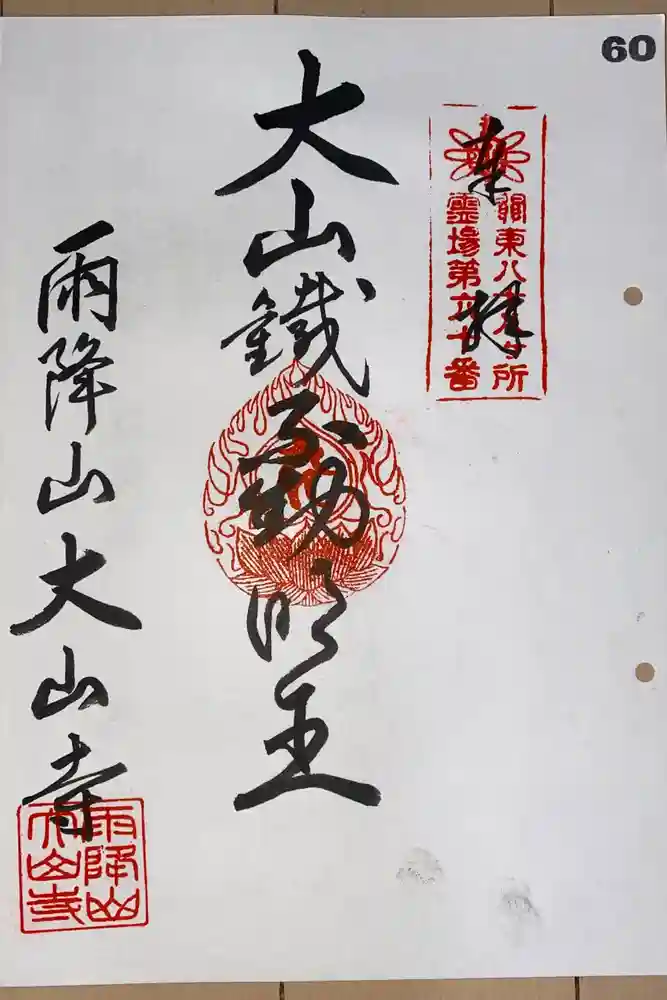 60
奉拝
關東八十八ヶ所
霊場第六十番
大山鐵不動明王
雨降山大山寺
雨降山
大山寺